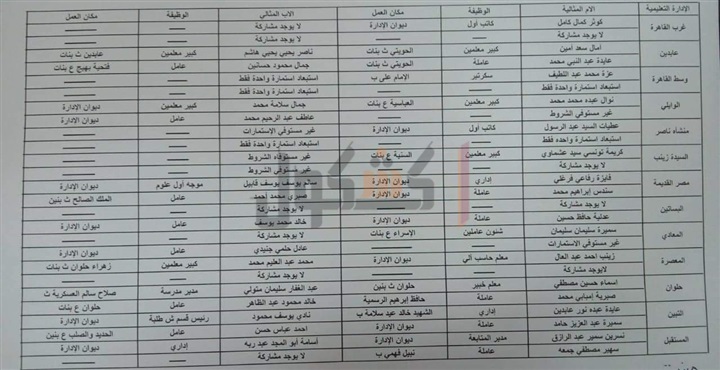 الإدارة التعليمية الأم المثالية الوظيفة مكان العمل الأب المثالي الوظيفة مكان العمل
غرب القاهرة كوثر كمال كامل كاتب أول ديوان الإدارة لا يوجد مشاركة
لا يوجد مشاركة لا يوجد مشاركة
عابدين آمال سعد أمين كبير معلمين الحويتي ث بنات ناصر يحيي يحيي هاشم كبير معلمين عابدين ث بنات
عايدة عبد النبي محمد عاملة الحويتي ث بنات جمال محمود حسانين عامل فتحية بهيج ع بنات
وسط القاهرة عزة محمد عبد اللطيف سكرتير الإمام على ب استبعاد استمارة واحدة فقط
استبعاد استمارة واحدة فقط استبعاد استمارة واحدة فقط
الوايلي نوال عبده محمد محمد كبير معلمين العباسية ع بنات جمال سلامة محمد كبير معلمين ديوان الإدارة
غير مستوفي الشروط عاطف عبد الرحيم محمد عامل ديوان الإدارة
منشأه ناصر عطيات السيد عبد الرسول كاتب أول ديوان الإدارة غير مستوفي الإستمارات
استبعاد استماره واحده فقط استبعاد استماره واحدة فقط
السيدة زينب كريمة تونسي سيد عشماوي كبير معلمين السنية ع بنات غير مستوفاه الشروط
لا يوجد مشاركة غير مستوفي الشروط
مصر القديمة فايزة رفاعي فرغلي إداري ديوان الإدارة سالم يوسف يوسف قابيل موجه أول علوم ديوان الإدارة
سندس إبراهيم محمد عاملة ديوان الإدارة صبري محمد أحمد عامل الملك الصالح ث بنين
البساتين لا يوجد مشاركة لا يوجد مشاركة
عدلية حافظ حسين عاملة ديوان الإدارة خالد محمد يوسف عامل ديوان الإدارة
المعادي سميرة سليمان سليمان شئون عاملين الإسراء ع بنات لا يوجد مشاركة
غير مستوفي الاستمارات عادل حلمي جنيدي عامل ديوان الإدارة
المعصرة زينب احمد عبد العال معلم حاسب آلي ديوان الإدارة محمد عبد العليم محمد كبير معلمين زهراء حلوان ث بنات
لايوجد مشاركة لا يوجد مشاركة
حلوان أسماء حسين مصطفي معلم خبير حلوان ث بنين عبد الغفار سليمان متولي مدير مدرسة صلاح سالم العسكرية ث
صبرية إمبابي محمد عاملة حافظ إبراهيم الرسمية خالد محمود عبد الظاهر عامل حلوان ع بنات
التبين عايدة عبده نور عابدين إداري الشهيد خالد عبد سلامة ب نادي يوسف محمود رئيس قسم ش طلبة ديوان الإدارة
سميرة عبد العزيز حامد عاملة ديوان الإدارة احمد عباس حسن عامل الحديد والصلب ع بنين
المستقبل نسرين سمير عبد الرازق مدير المتابعة ديوان الإدارة أسامة أبو المجد عبد ربه إداري ديوان الإدارة
سهير مصطفي جمعه عاملة نبيل فهمي ب لا يوجد مشاركة